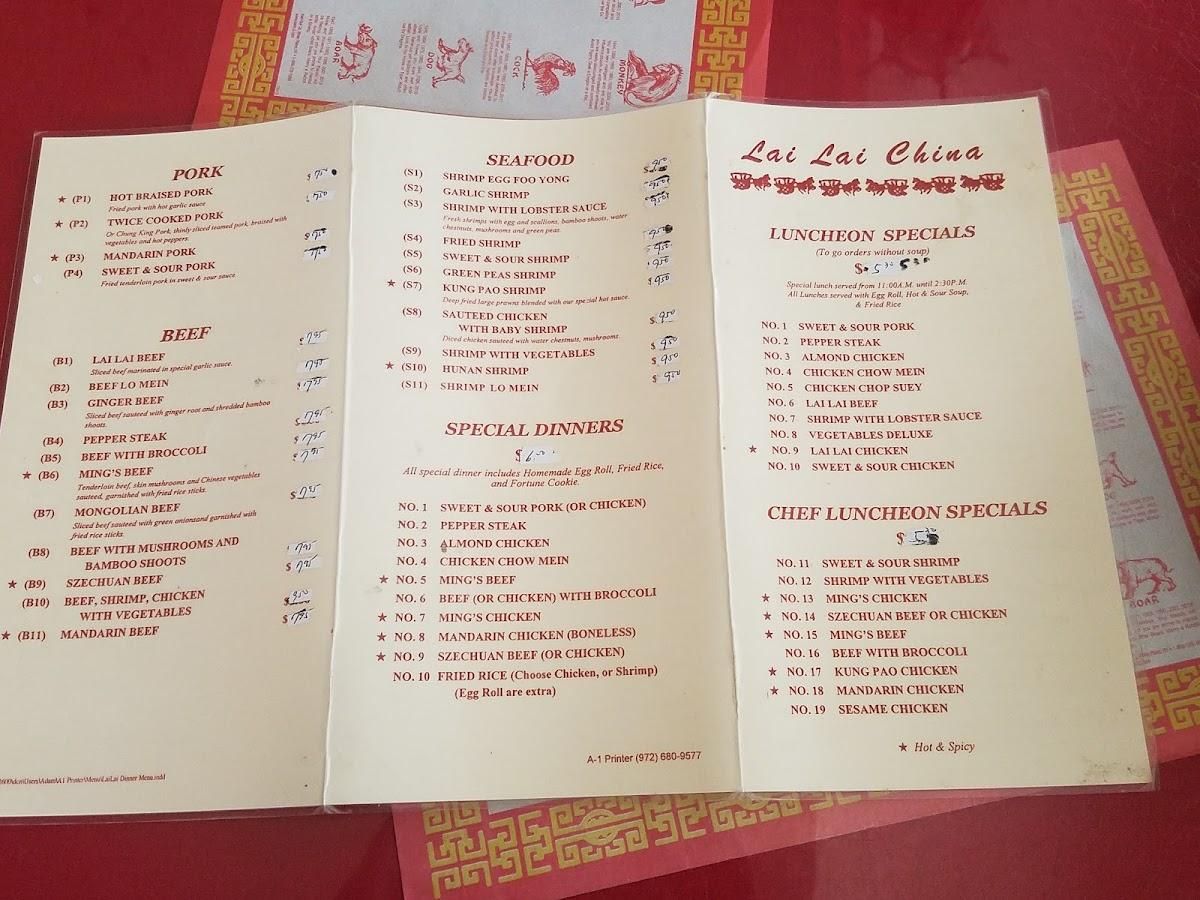 BOAR
DOG
COCK
MONKEY
PORK
★ (P1) HOT BRAISED PORK
Fried pork with hot garlic sauce
★ (P2) TWICE COOKED PORK
Or Chung King Pork, thinly sliced teamed pork, braised with
vegetables and hot peppers.
★ (P3) MANDARIN PORK
(P4) SWEET & SOUR PORK
Fried tenderloin pork in sweet & sour sauce
BEEF
(B1) LAI LAI BEEF $ 7.95
Sliced beef marinated in special garlic sauce.
(B2) BEEF LO MEIN 7.95
(B3) GINGER BEEF $ 7.95
Sliced beef sauteed with ginger root and shredded bamboo
shoots.
(B4) PEPPER STEAK $ 7.95
(B5) BEEF WITH BROCCOLI $ 7.95
★ (B6) MING'S BEEF $ 7.95
Tenderloin beef, skin mushrooms and Chinese vegetables
sauteed, garnished with fried rice sticks.
(B7) MONGOLIAN BEEF $ 7.95
Sliced beef sauteed with green onionsand garnished with
fried rice sticks.
(B8) BEEF WITH MUSHROOMS AND
BAMBOO SHOOTS 7.95
★ (B9) SZECHUAN BEEF $ 7.95
(B10) BEEF, SHRIMP, CHICKEN
WITH VEGETABLES
★ (B11) MANDARIN BEEF $ 7.95
Printer\Menu\LaiLai Dinner Menu.indd
SEAFOOD
(S1) SHRIMP EGG FOO YONG
(S2) GARLIC SHRIMP 9.50
(S3) SHRIMP WITH LOBSTER SAUCE 9.50
Fresh shrimps with egg and scallions, bamboo shoots, water
chestnuts, mushrooms and green peas.
(S4) FRIED SHRIMP 9.50
(S5) SWEET & SOUR SHRIMP 9.50
(S6) GREEN PEAS SHRIMP 9.50
★ (S7) KUNG PAO SHRIMP 9.50
Deep fried large prawns blended with our spezial hot sauce.
(S8) SAUTEED CHICKEN
WITH BABY SHRIMP $ 9.50
Diced chicken sauteed with water chestnuts, mushrooms.
(S9) SHRIMP WITH VEGETABLES $ 9.50
★ (S10) HUNAN SHRIMP $ 9.50
(S11) SHRIMP LO MEIN $ 9.50
SPECIAL DINNERS
$ 6.00
All special dinner includes Homemade Egg Roll, Fried Rice,
and Fortune Cookie.
NO. 1 SWEET & SOUR PORK (OR CHICKEN)
NO. 2 PEPPER STEAK
NO. 3 ALMOND CHICKEN
NO. 4 CHICKEN CHOW MEIN
★ NO. 5 MING'S BEEF
NO. 6 BEEF (OR CHICKEN) WITH BROCCOLI
★ NO. 7 MING'S CHICKEN
★ NO. 8 MANDARIN CHICKEN (BONELESS)
★ NO. 9 SZECHUAN BEEF (OR CHICKEN)
NO. 10 FRIED RICE (Choose Chicken, or Shrimp)
(Egg Roll are extra)
A-1 Printer (972) 680-9577
Lai Lai China
LUNCHEON SPECIALS
(To go orders without soup)
$ 5.30 5.30
Special lunch served from 11:00A.M. until 2:30P.M.
All Lunches served with Egg Roll, Hot & Sour Soup,
& Fried Rice
NO. 1 SWEET & SOUR PORK
NO. 2 PEPPER STEAK
NO. 3 ALMOND CHICKEN
NO. 4 CHICKEN CHOW MEIN
NO. 5 CHICKEN CHOP SUEY
NO. 6 LAI LAI BEEF
NO. 7 SHRIMP WITH LOBSTER SAUCE
NO. 8 VEGETABLES DELUXE
★ NO. 9 LAI LAI CHICKEN
NO. 10 SWEET & SOUR CHICKEN
CHEF LUNCHEON SPECIALS
$
NO. 11 SWEET & SOUR SHRIMP
NO. 12 SHRIMP WITH VEGETABLES
★ NO. 13 MING'S CHICKEN
★ NO. 14 SZECHUAN BEEF OR CHICKEN
★ NO. 15 MING'S BEEF
NO. 16 BEEF WITH BROCCOLI
★ NO. 17 KUNG PAO CHICKEN
★ NO. 18 MANDARIN CHICKEN
NO. 19 SESAME CHICKEN
★ Hot & Spicy
BOAR